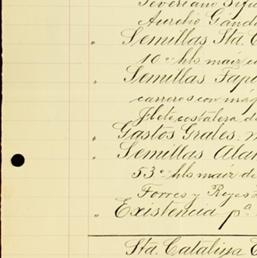 Severiano Sifu
Aurelio Gand
" Semillas Sta. C
10 hls maiz c
" Semillas Tapi
carreros con má
Flete costalera d
" Gastos Grales. m
" Semillas Alar
53 hls maiz de
Torres y Reyes
" Existencia pª
Sta. Catalina C